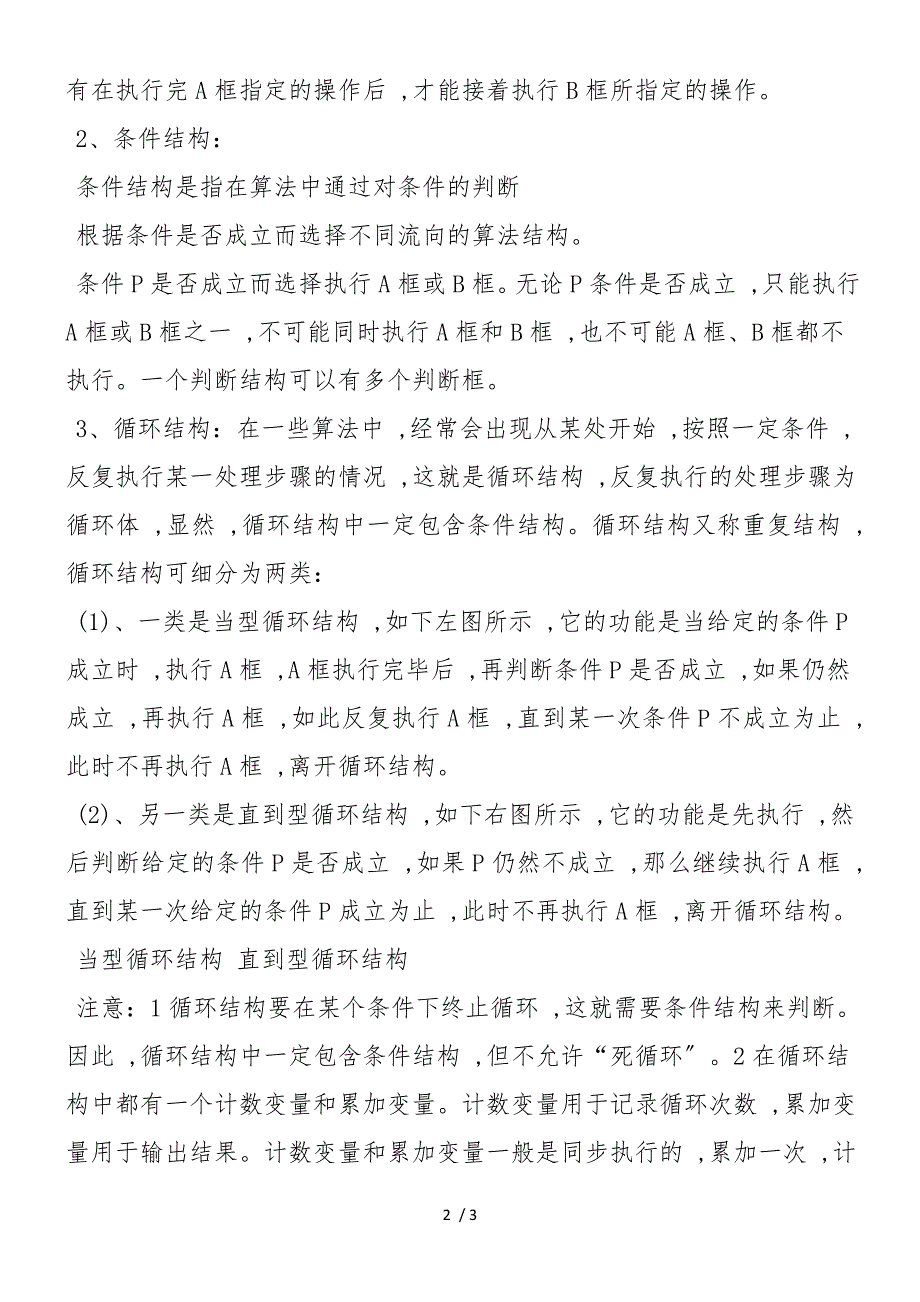 有在执行完A框指定的操作后 ,才能接着执行B框所指定的操作。
2、条件结构：
条件结构是指在算法中通过对条件的判断
根据条件是否成立而选择不同流向的算法结构。
条件P是否成立而选择执行A框或B框。无论P条件是否成立 ,只能执行
A框或B框之一 ,不可能同时执行A框和B框 ,也不可能A框、B框都不
执行。一个判断结构可以有多个判断框。
3、循环结构：在一些算法中 ,经常会出现从某处开始 ,按照一定条件 ,
反复执行某一处理步骤的情况 ,这就是循环结构 ,反复执行的处理步骤为
循环体 ,显然 ,循环结构中一定包含条件结构。循环结构又称重复结构 ,
循环结构可细分为两类：
(1)、一类是当型循环结构 ,如下左图所示 ,它的功能是当给定的条件P
成立时 ,执行A框 ,A框执行完毕后 ,再判断条件P是否成立 ,如果仍然
成立 ,再执行A框 ,如此反复执行A框 ,直到某一次条件P不成立为止 ,
此时不再执行A框 ,离开循环结构。
(2)、另一类是直到型循环结构 ,如下右图所示 ,它的功能是先执行 ,然
后判断给定的条件P是否成立 ,如果P仍然不成立 ,那么继续执行A框 ,
直到某一次给定的条件P成立为止 ,此时不再执行A框 ,离开循环结构。
当型循环结构 直到型循环结构
注意：1循环结构要在某个条件下终止循环 ,这就需要条件结构来判断。
因此 ,循环结构中一定包含条件结构 ,但不允许“死循环〞。2在循环结
构中都有一个计数变量和累加变量。计数变量用于记录循环次数 ,累加变
量用于输出结果。计数变量和累加变量一般是同步执行的 ,累加一次 ,计
2 / 3